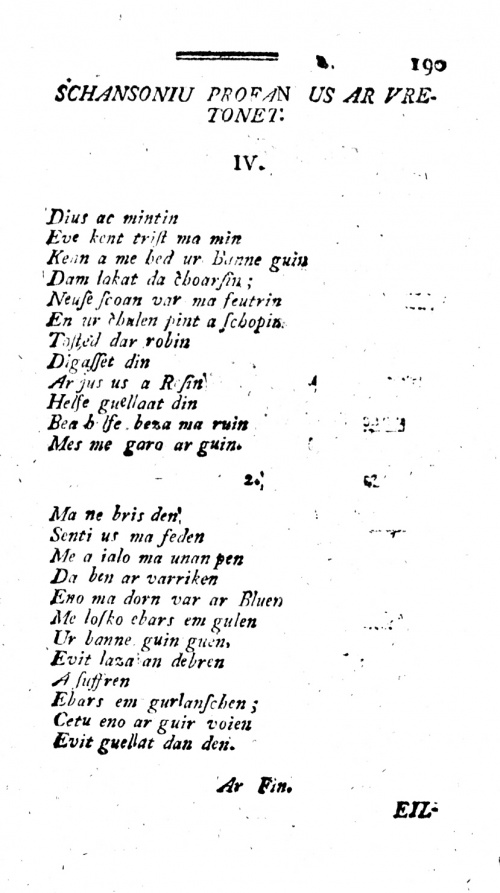 190
SCHANSONIU PROFAN US AR VRE-
TONET.
IV.
Dius ac mintin
Eve kent triſt ma min
Kenn a me bed ur Banne guin
Dam lakat da c̀hoarſin ;
Neuſe ſcoan var ma feutrin
En ur c̀hulen pint a ſchopin.
dar robin
Digaſſet din
Ar jus us a Reſin
Helſe guellaat din
Bea helſe beza ma ruin
Mes me garo ar guin.
2.
Ma ne bris den,
Senti us ma feden
Me a ialo ma unan pen
Da ben ar varriken
Eno ma dorn var ar Bluen
Me loſko ebars em gulen
Ur banne guin guen,
Evit laza an debren
A ſuffren
Ebars em gurlanſchen ;
Cetu eno ar guir voien
Evit guellat dan den.
Ar Fin.
EIL-